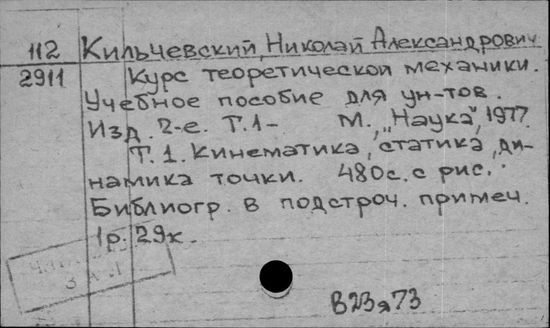 112 Кильчевский, Николай Александрович
2911 Курс теоретической механики.
Учебное пособие для ун-тов.
Изд. 2-е. Т.1- М., "Наука", 1977
Т. 1. Кинематика, статика, ди-
намика точки. 480с. с рис.
Библиогр. в подстроч. примеч.
1р. 29к.
В23я73